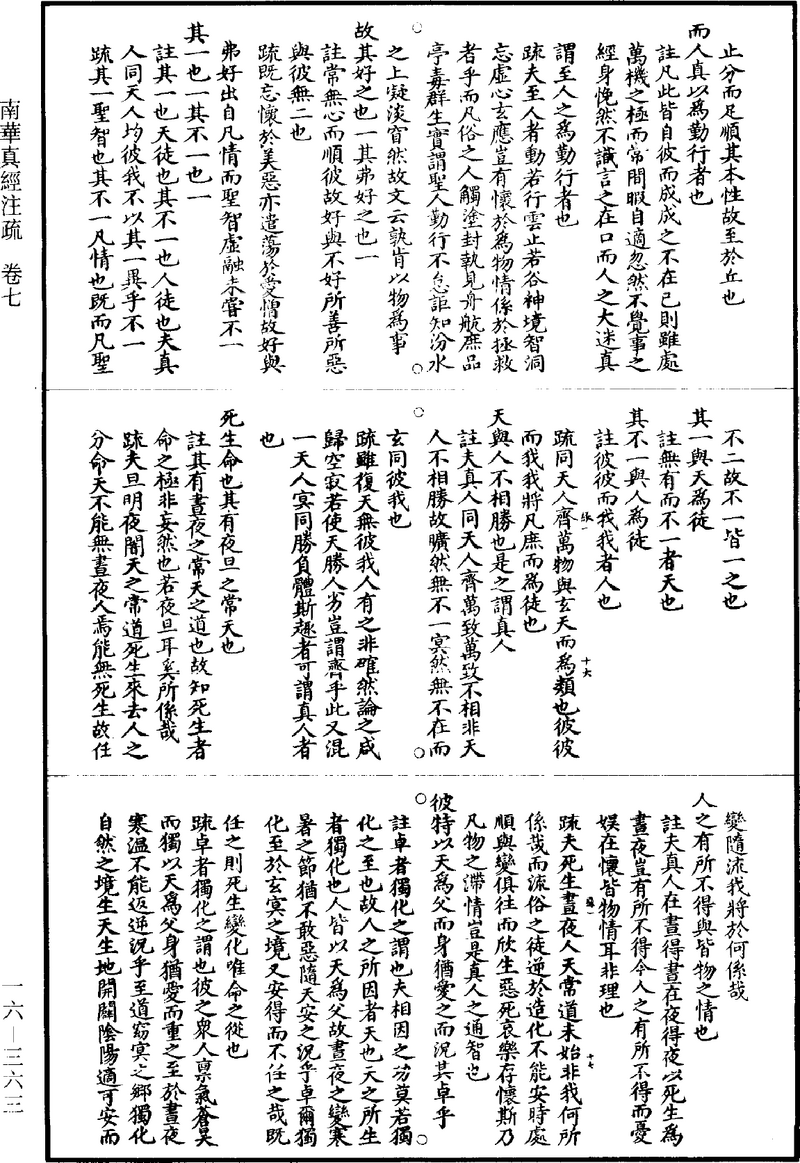 止分而足順其本性故至於丘也
而人真以為勤行者也
註凡此皆自彼而成成之不在己則雖處
萬機之極而常閒暇自適忽然不覺事之
經身悗然不識言之在口而人之大迷真
謂至人之為勤行者也
疏夫至人者動若行雲止若谷神境智洞
忘虛心玄應豈有懷於為物情係於拯救
者乎而凡俗之人觸塗封執見舟航庶品
亭毒群生實謂聖人勤行不怠詎知汾水
之上凝淡窅然故文云孰肯以物為事
故其好之也一其弗好之也一
註常無心而順彼故好與不好所善所惡
與彼無二也
疏既忘懷於美惡亦遣蕩於愛憎故好與
弗好出自凡情而聖智虛融未嘗不一
其一也一其不一也一
註其一也天徒也其不一也人徒也夫真
人同天人均彼我不以其一異乎不一
疏其一聖智也其不一凡情也既而凡聖
不二故不一皆一之也
其一與天為徒
註無有而不一者天也
其不一與人為徒
註彼彼而我我者人也
疏同天人齊萬物與玄天而為類也彼彼
而我我將凡庶而為徒也
天與人不相勝也是之謂真人
註夫真人同天人齊萬致萬致不相非天
人不相勝故曠然無不一冥然無不在而
玄同彼我也
疏雖復天無彼我人有之非確然論之咸
歸空寂若使天勝人劣豈謂齊乎此又混
一天人冥同勝負體斯趣者可謂真人者
也
死生命也其有夜旦之常天也
註其有晝夜之常天之道也故知死生者
命之極非妄然也若夜旦耳奚所係哉
疏夫旦明夜闇天之常道死生來去人之
分命天不能無晝夜人焉能無死生故任
變隨流我將於何係哉
人之有所不得與皆物之情也
註夫真人在晝得晝在夜得夜以死生為
晝夜豈有所不得今人之有所不得而憂
娛在懷皆物情耳非理也
疏夫死生晝夜人天常道未始非我何所
係哉而流俗之徒逆於造化不能安時處
順與變俱往而欣生惡死哀樂存懷斯乃
凡物之滯情豈是真人之通智也
彼特以天為父而身猶愛之而況其卓乎
註卓者獨化之謂也夫相因之功莫若獨
化之至也故人之所因者天也天之所生
者獨化也人皆以天為父故晝夜之變寒
暑之節猶不敢惡隨天安之況乎卓爾獨
化至於玄冥之境又安得而不任之哉既
任之則死生變化唯命之從也
疏卓者獨化之謂也彼之眾人稟氣蒼旻
而獨以天為父身猶愛而重之至於晝夜
寒溫不能返逆況乎至道窈冥之鄉獨化
自然之境生天生地開闢陰陽適可安而
南華真經注疏 卷七
一六—三六三
十六
十七